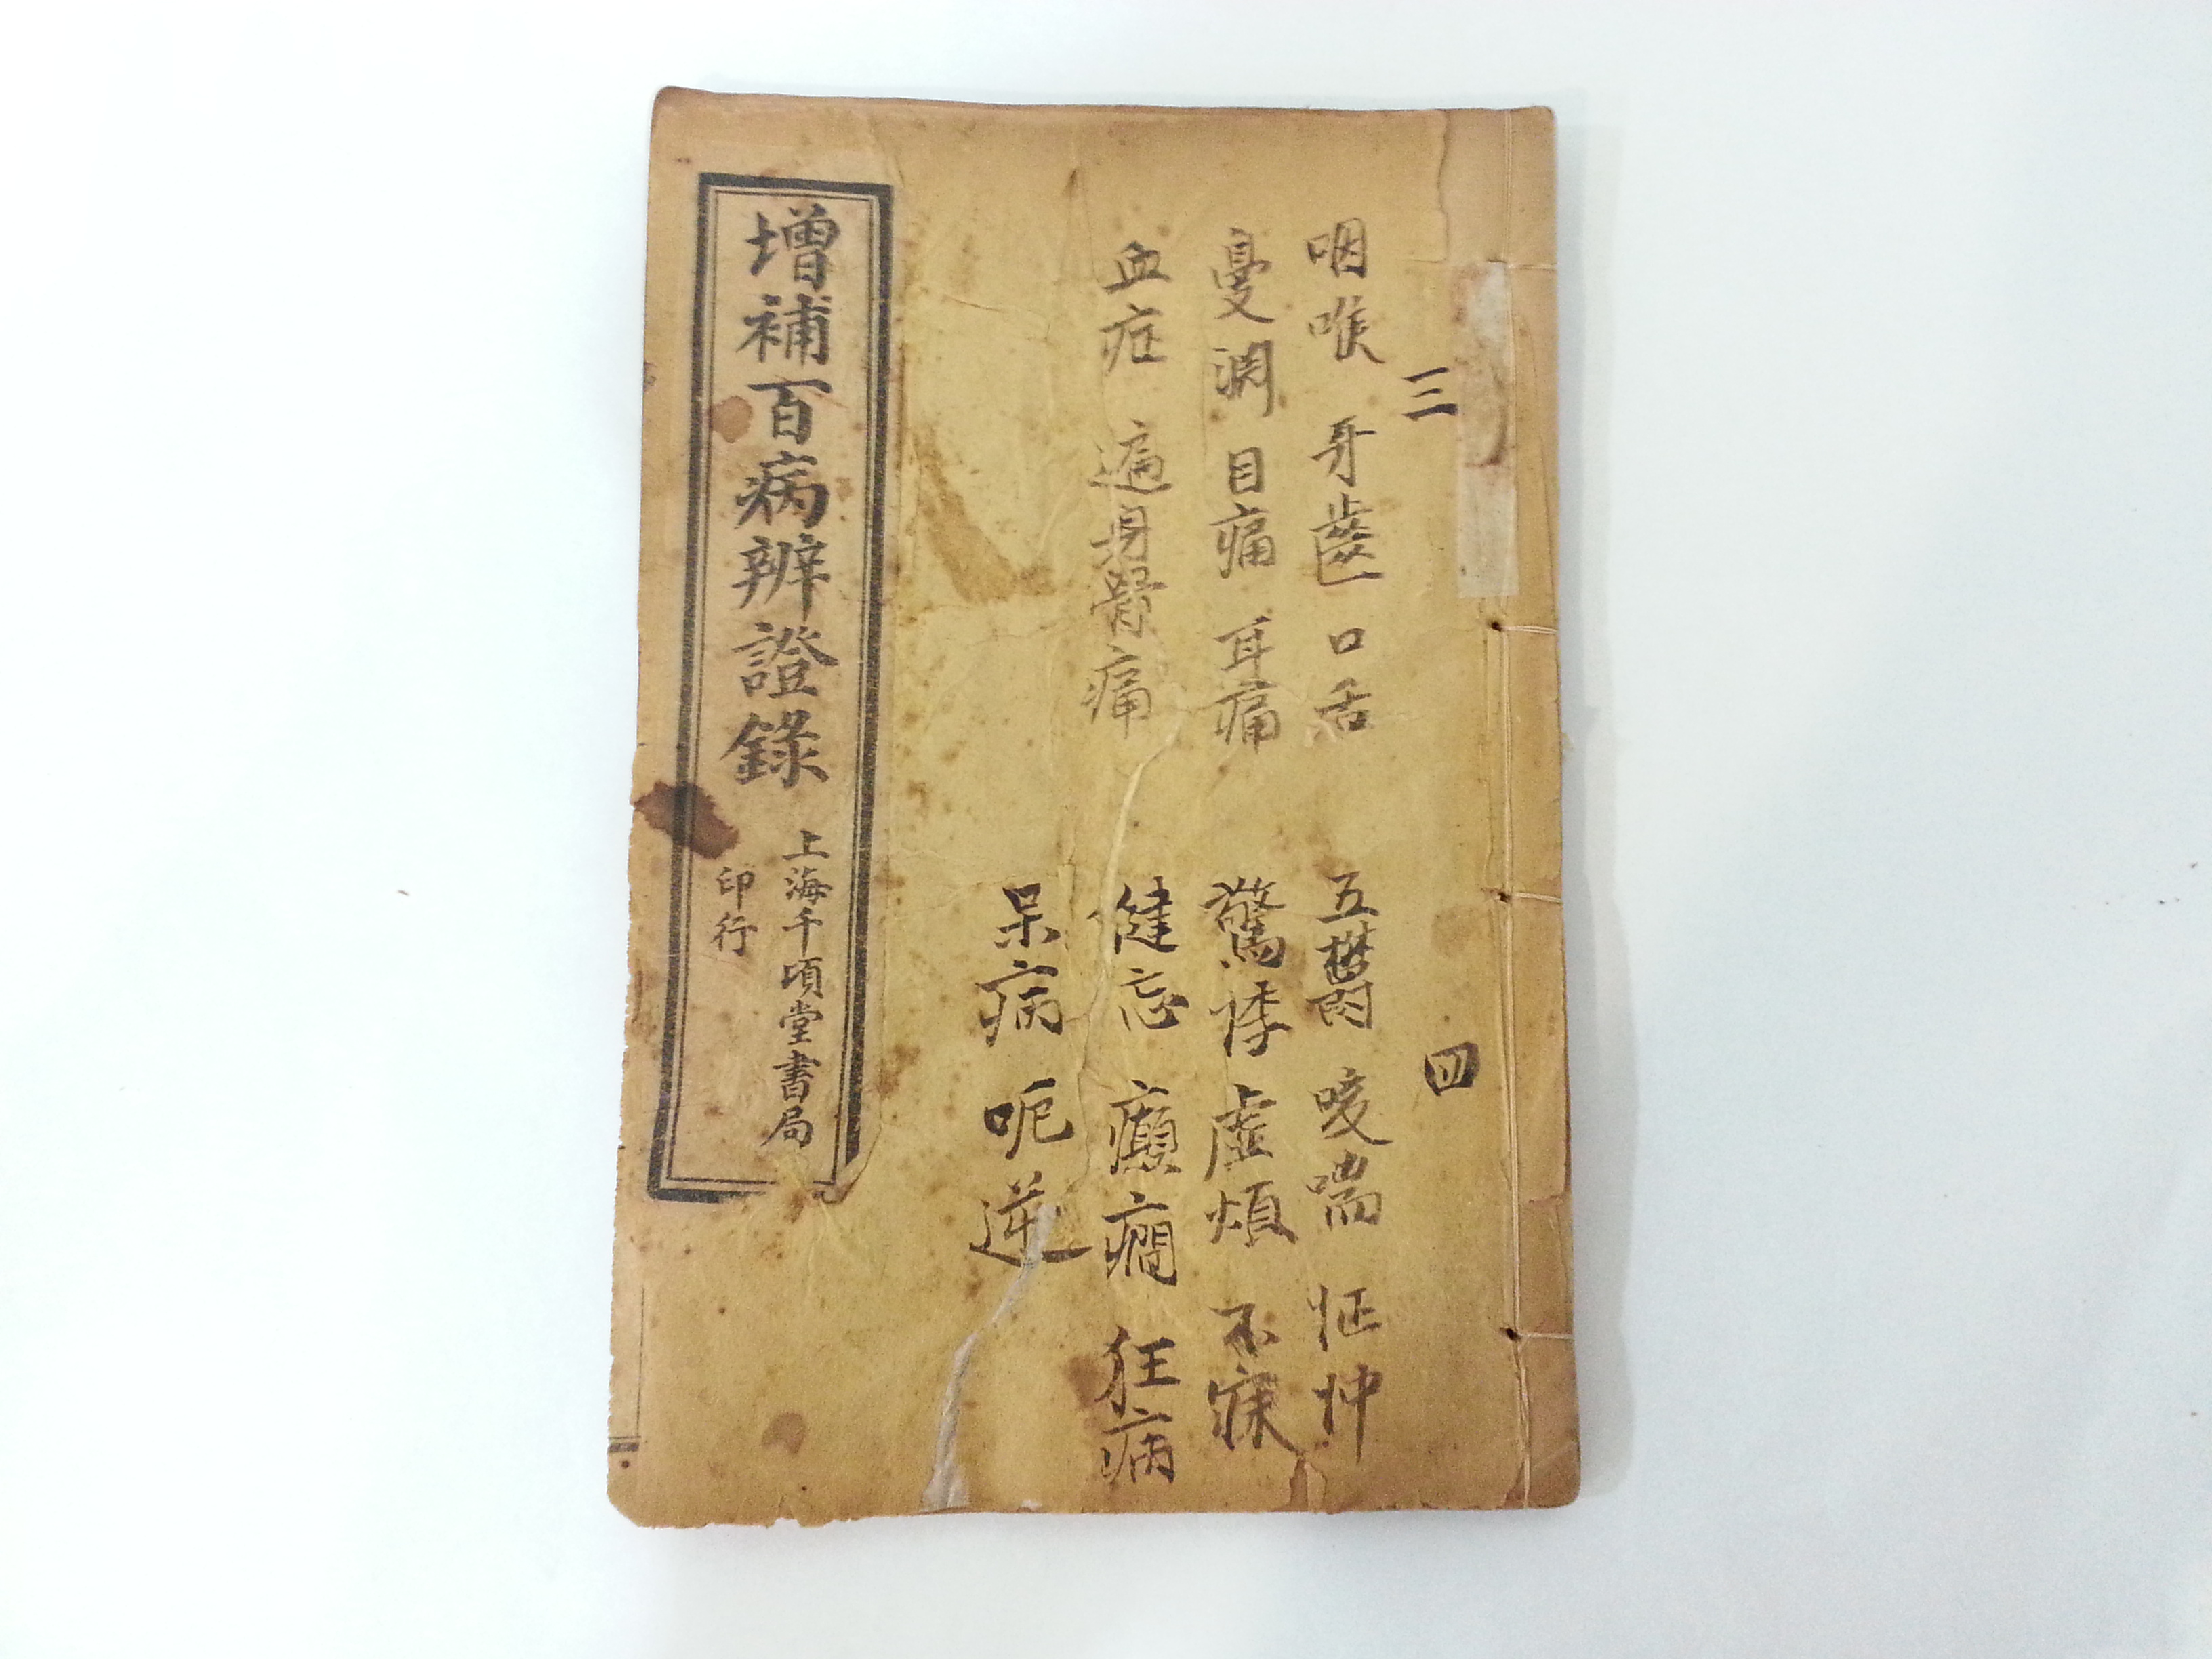 三
咽喉 牙齒 口舌
淵 目痛 耳痛
血症 遍身骨痛
四
五鬱 咳喘 怔忡
驚悸 虛煩 不寐
健忘 癲癇 狂病
呆病 呃逆
增補百病辨證錄
上海千頃堂書局
印行